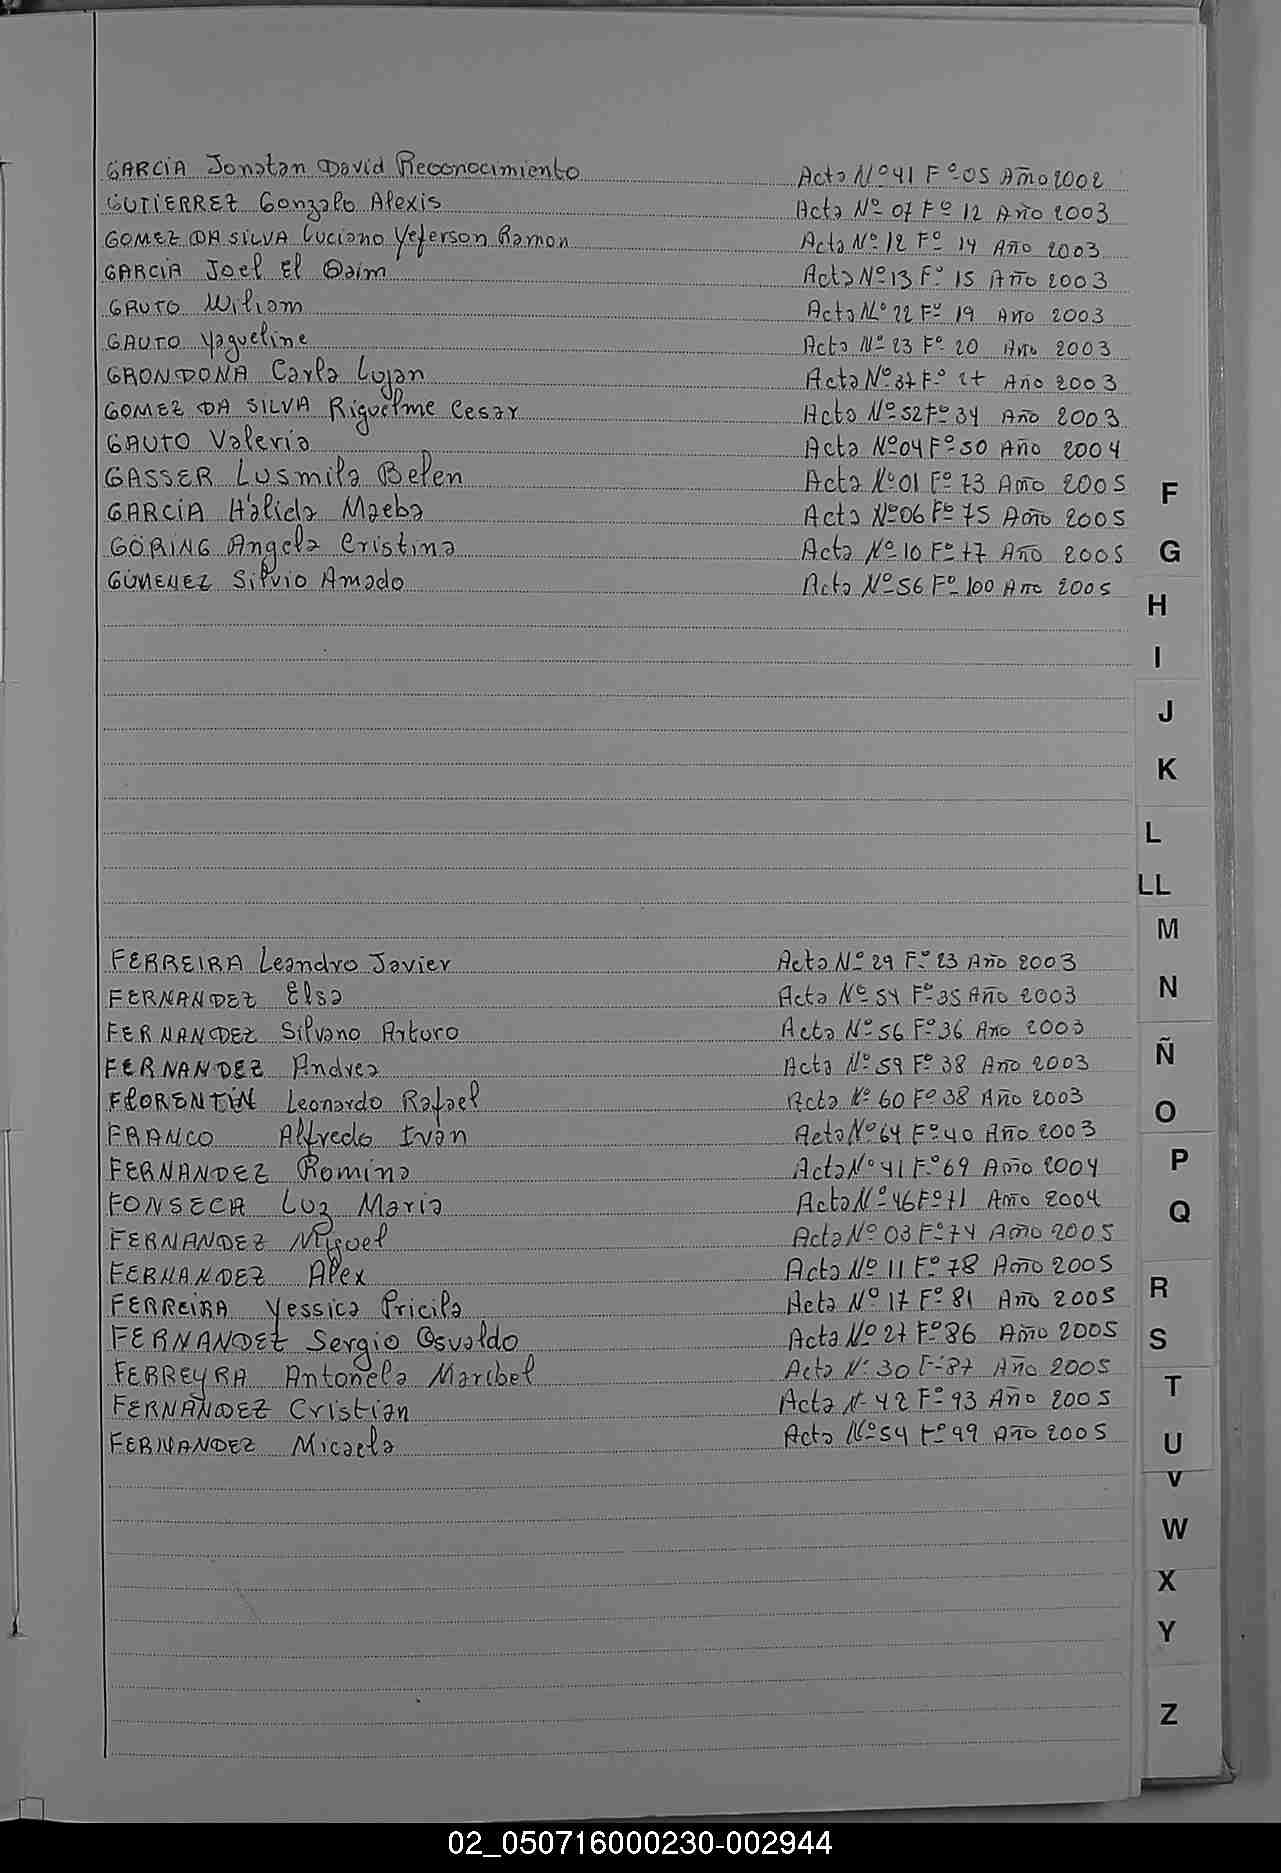 GARCIA Jonatan David Reconocimiento Acta Nº 41 Fº 05 Año 2002
GUTIERREZ Gonzalo Alexis Acta Nº 07 Fº 12 Año 2003
GOMEZ DA SILVA Luciano Yeferson Ramon Acta Nº 12 Fº 14 Año 2003
GARCIA Joel El Qaim Acta Nº 13 Fº 15 Año 2003
GAUTO Wiliam Acta Nº 22 Fº 19 Año 2003
GAUTO Yaqueline Acta Nº 23 Fº 20 Año 2003
GRONDONA Carla Lujan Acta Nº 37 Fº 27 Año 2003
GOMEZ DA SILVA Riquelme Cesar Acta Nº 52 Fº 34 Año 2003
GAUTO Valeria Acta Nº 04 Fº 50 Año 2004
GASSER Lusmila Belen Acta Nº 01 Fº 73 Año 2005
GARCIA Hálida Maeba Acta Nº 06 Fº 75 Año 2005
GÖRING Angela Cristina Acta Nº 10 Fº 77 Año 2005
GIMENEZ Silvio Amado Acta Nº 56 Fº 100 Año 2005
FERREIRA Leandro Javier Acta Nº 29 Fº 23 Año 2003
FERNANDEZ Elsa Acta Nº 54 Fº 35 Año 2003
FERNANDEZ Silvano Arturo Acta Nº 56 Fº 36 Año 2003
FERNANDEZ Andrea Acta Nº 59 Fº 38 Año 2003
FLORENTIN Leonardo Rafael Acta Nº 60 Fº 38 Año 2003
FRANCO Alfredo Ivan Acta Nº 64 Fº 40 Año 2003
FERNANDEZ Romina Acta Nº 41 Fº 69 Año 2004
FONSECA Luz Maria Acta Nº 46 Fº 71 Año 2004
FERNANDEZ Miguel Acta Nº 03 Fº 74 Año 2005
FERNANDEZ Alex Acta Nº 11 Fº 78 Año 2005
FERREIRA Yessica Pricila Acta Nº 17 Fº 81 Año 2005
FERNANDEZ Sergio Osvaldo Acta Nº 27 Fº 86 Año 2005
FERREYRA Antonela Maribel Acta Nº 30 Fº 87 Año 2005
FERNANDEZ Cristian Acta Nº 42 Fº 93 Año 2005
FERNANDEZ Micaela Acta Nº 54 Fº 99 Año 2005
F
G
H
I
J
K
L
LL
M
N
Ñ
O
P
Q
R
S
T
U
V
W
X
Y
Z
02_050716000230-002944